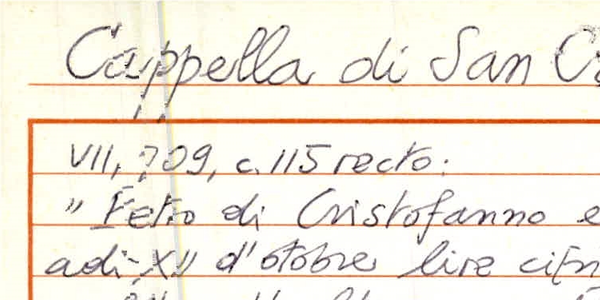 Cappella di San
VII, 709, c. 115 recto:
" Petro di Cristofanno e
adi XII d'otobre lire